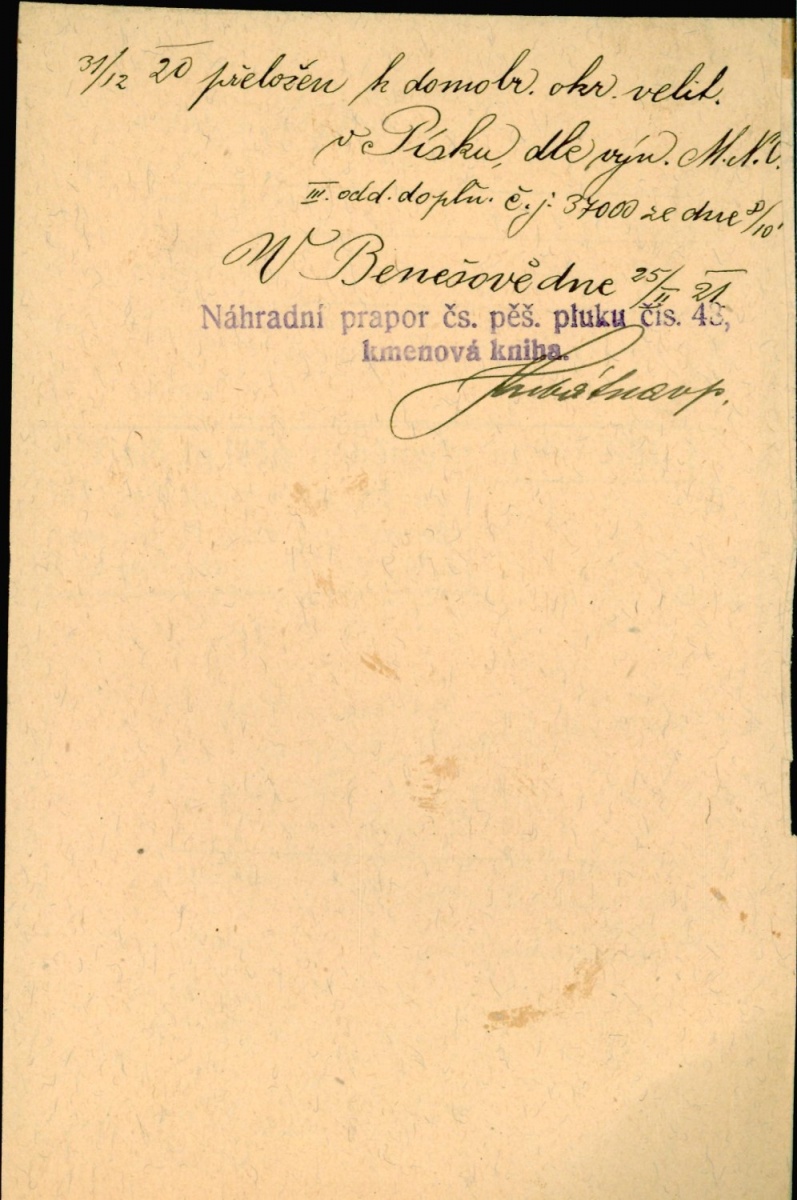 31/12 20 přeložen k domobr. okr. velit.
v Písku, dle výn. M.N.O.
III. odd. doplň. č.j. 37000 ze dne 8/10
V Benešově dne 25/II 21
Náhradní prapor čs. pěš. pluku čís. 48,
kmenová kniha.